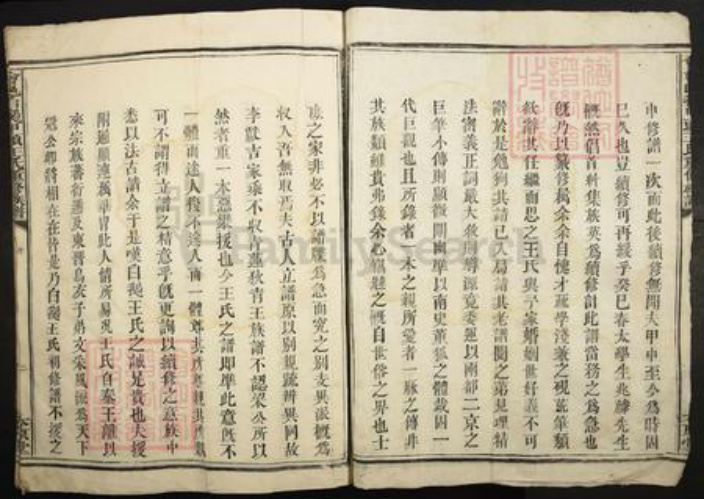 申修譜一次而此後續修無聞大甲申至今為時固
已久也豈續修可再緩乎癸巳春太學生兆麟先生
慨然倡首糾集族英為續修計此譜當務之為急也
既乃以纂修屬余余自愧才疏學淺兼之硯荒筆頹
欲辭其任繼而思之王氏與予家婚姻世好義不可
辭於是勉狥其請已入局請其老譜閱之第見理精
法密義正詞嚴大敘則導源竟委以兩都二京之
巨筆小傳則顯微闡幽準以南史董狐之體裁固一
代巨觀也且所錄者一本之親所愛者一脉之傳非
其族類雖貴弗錄余心竊慰之慨自世俗之界也士
族之家非必不以譜牒為急而究之別支異派概為
收入咨無取焉夫古人立譜原以別親疏辨異同故
李獻吉家乘不收青蓮狄青王族譜不認梁公所以
然者重一本惡攀援也今王氏之譜即準此意既不
一體而遠人復不遠人而一體尊其所尊親其所親
可不謂得立譜之精意乎既更詢以續修之意族中
悉以法古請余于是嘆白髮王氏之誠足貴也夫援
附雖顯達為華胄此人情所易況王氏自秦王離以
來宗族蕃衍遞及東晉烏衣子弟文采風流為天下
冠公卿將相在在皆是乃白髮王氏初修譜不援之
FamilySearch